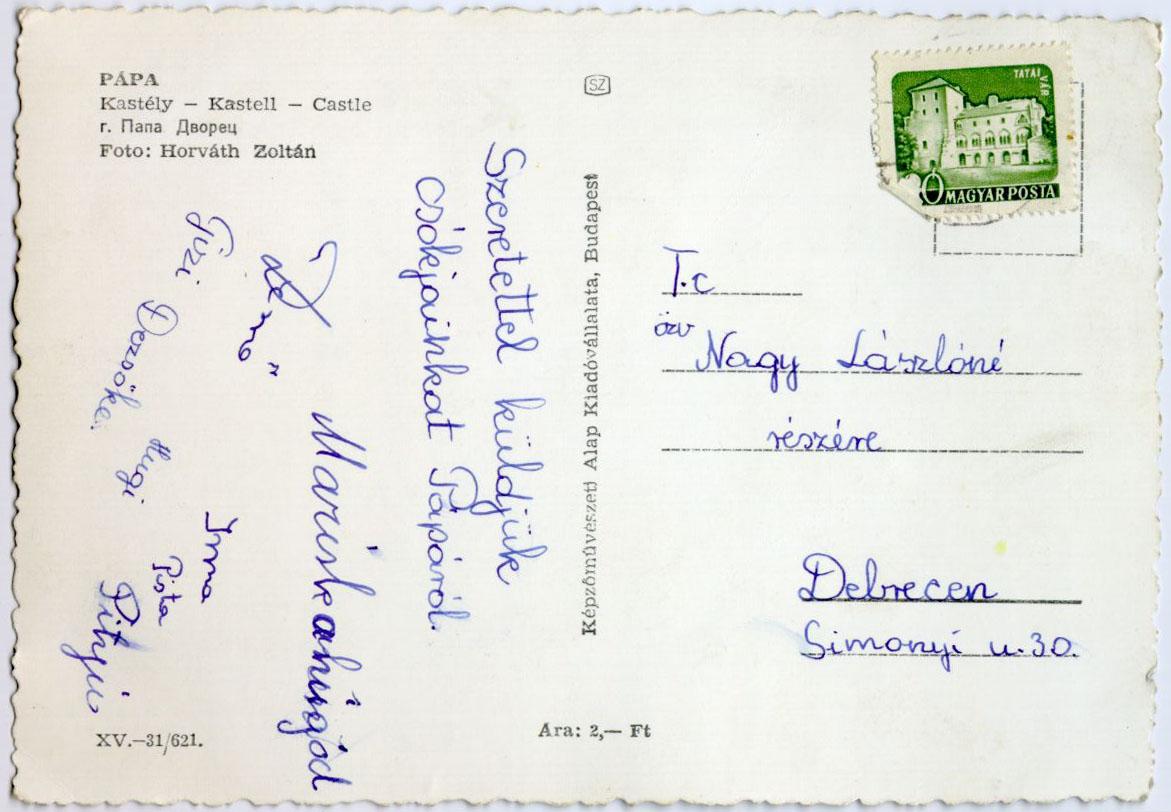 PÁPA
Kastély – Kastell – Castle
г. Папа Дворец
Foto: Horváth Zoltán
SZ
TATAI VÁR
MAGYAR POSTA
Szeretettel küldjük
csókjainkat Pápáról.
Mariska húgod
Dezsőke
Hugi
Irma
Pista
Képzőművészeti Alap Kiadóvállalata, Budapest
T.c
özv
Nagy Lászlóné
részére
Debrecen
Simonyi u. 30.
XV.–31/621.
Ara: 2,— Ft